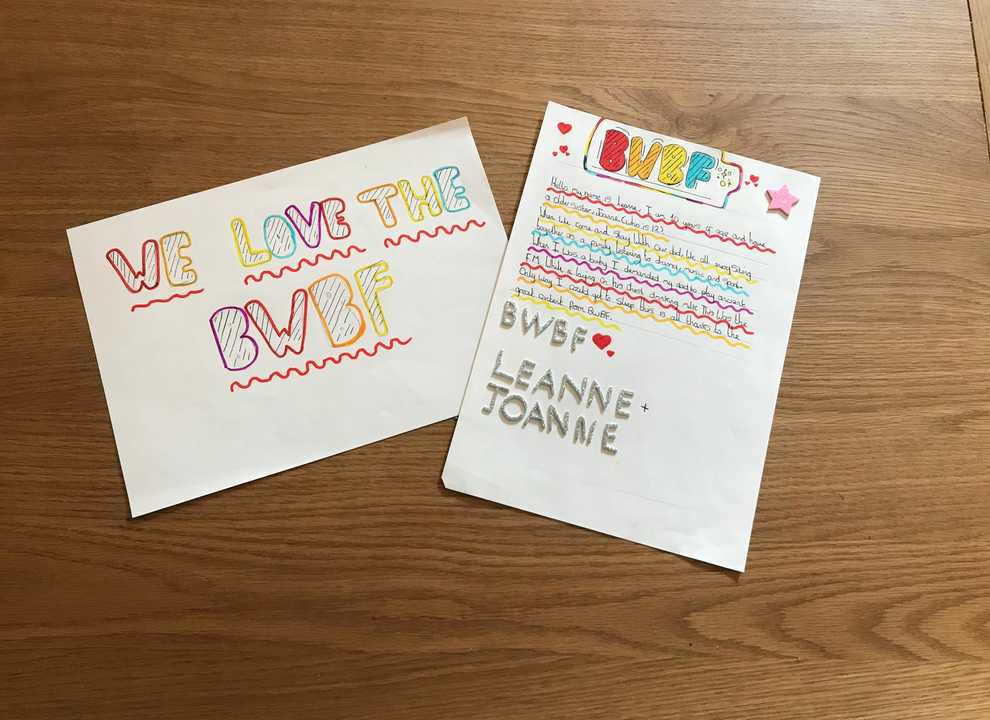 WE LOVE THE
BWBF
BWBF
Hello my name is Leanne. I am 10 years of age and have
a older sister, Joanne (who is 12).
When We come and stay With our dad We all sway
together as a family listening to strange music and
When I was a baby I demanded my dad to play ancient
F.M. While laying on his chest drinking milk. This Was the
Only way I could get to sleep. this is all thanks to the
great content from BWBF.
BWBF
LEANNE +
JOANNE